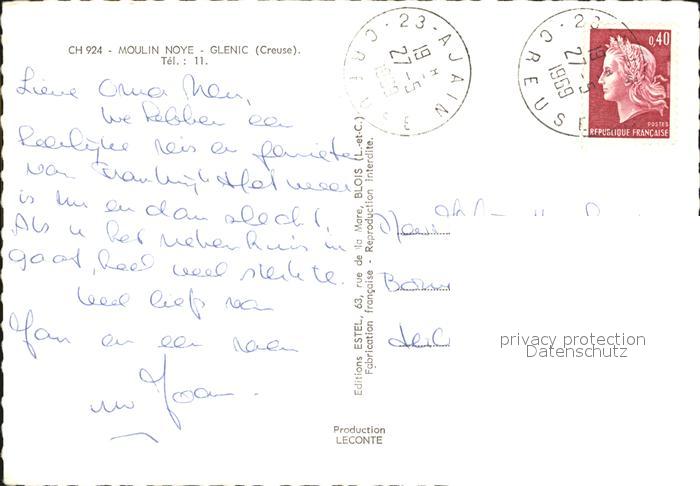 CH 924 - MOULIN NOYE - GLENIC (Creuse).
Tél. : 11.
Lieve Oma Men,
We hebben een
heerlijke reis en genieten
van Frankrijk. Het weer
is nu en dan slecht.
Als u het ziekenhuis in
gaat, heel veel sterkte.
Veel liefs van
Jan en een
Joan.
Editions ESTEL, 63, rue de la Mare, BLOIS (L.-et-C.)
Fabrication française - Reproduction Interdite.
Production
LECONTE
23 - AJAIN
19 H
27-5
1969
CREUSE
23
19
27-5
1969
CREUSE
0,40
POSTES
REPUBLIQUE FRANÇAISE
privacy protection
Datenschutz